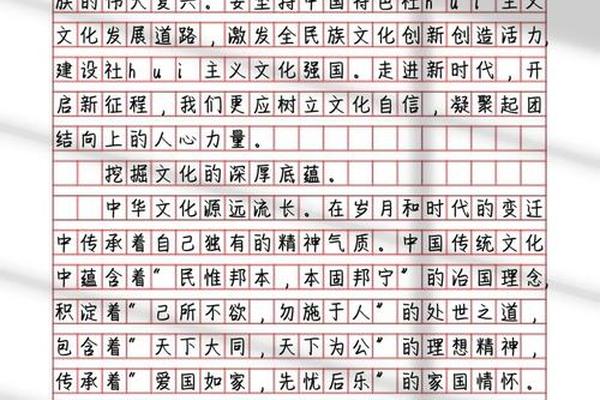 族的伟大复兴。要坚持中国特色社hui主义
文化发展道路，激发全民族文化创新创造活力，
建设社hui主义文化强国。走进新时代，开
启新征程，我们更应树立文化自信，凝聚起团
结向上的人心力量。
挖掘文化的深厚底蕴。
中华文化源远流长。在岁月和时代的变迁
中传承着自己独有的精神气质。中国传统文化
中蕴含着"民惟邦本，本固邦宁"的治国理念，
积淀着"己所不欲，勿施于人"的处世之道，
包含着"天下大同，天下为公"的理想精神，
传承着"爱国如家，先忧后乐"的家国情怀。